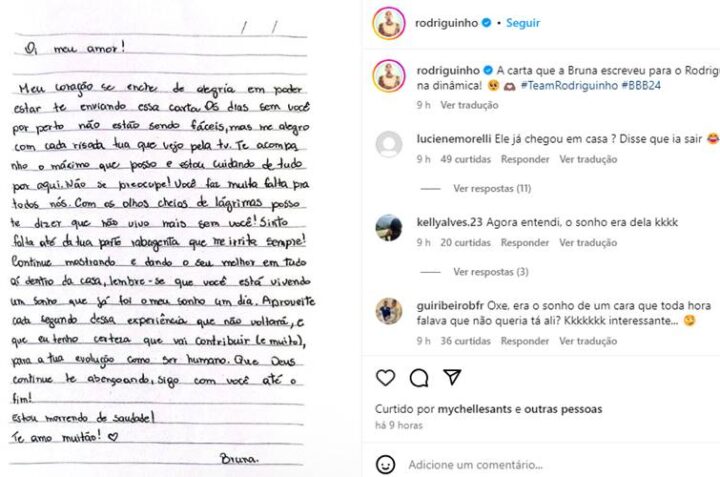 Oi meu amor!
Meu coração se enche de alegria em poder
estar te enviando essa carta. Os dias sem você
por perto não estão sendo fáceis, mas me alegro
com cada risada tua que vejo pela tv. Te acompa
nho o máximo que posso e estou cuidando de tudo
por aqui. Não se preocupe! Você faz muita falta pra
todos nós. Com os olhos cheios de lágrimas posso
te dizer que não vivo mais sem você! Sinto
falta até da tua parte rabugenta que me irrita sempre!
Continue mostrando e dando o seu melhor em tudo
aí dentro da casa, lembre-se que você está vivendo
um sonho que já foi o meu sonho um dia. Aproveite
cada segundo dessa experiência que não voltará, e
que eu tenho certeza que vai contribuir (e muito),
para a tua evolução como ser humano. Que Deus
continue te abençoando, sigo com você até o
fim!
Estou morrendo de saudade!
Te amo muitão! ♡
Bruna.
rodriguinho • Seguir
rodriguinho A carta que a Bruna escreveu para o Rodrig
na dinâmica! 🥹🫶🏽 #TeamRodriguinho #BBB24
9 h Ver tradução
lucienemorelli Ele já chegou em casa ? Disse que ia sair 😂
9 h 49 curtidas Responder Ver tradução
Ver respostas (11)
kellyalves.23 Agora entendi, o sonho era dela kkkk
9 h 20 curtidas Responder Ver tradução
Ver respostas (3)
guiribeirobfr Oxe, era o sonho de um cara que toda hora
falava que não queria tá ali? Kkkkkkk interessante... 🤔
9 h 36 curtidas Responder Ver tradução
Curtido por mychellesants e outras pessoas
há 9 horas
Adicione um comentário...